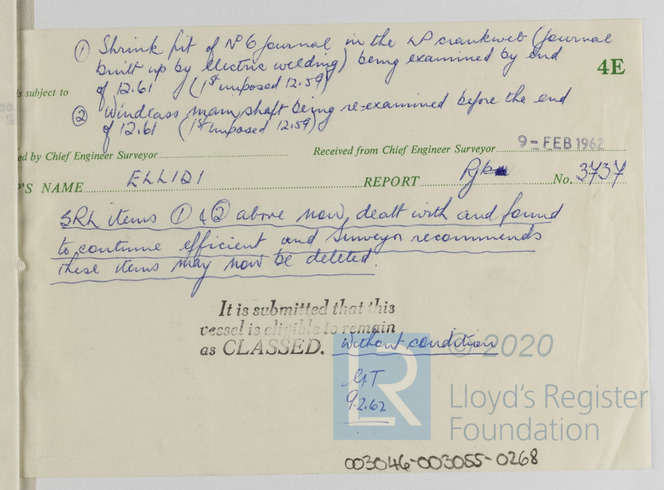 ① Shrink fit of No 6 Journal in the LP crankweb (journal
built up by electric welding) being examined by end
of 12.61 (1st imposed 12.59)
4E
s subject to
② Windlass mainshaft being re-examined before the end
of 12.61 (1st imposed 12.59)
ed by Chief Engineer Surveyor Received from Chief Engineer Surveyor 9-FEB 1962
P'S NAME ELLIDI REPORT Rjk No. 3737
SRL items ① & ② above now dealt with and found
to continue efficient and Surveyor recommends
these items may now be deleted.
It is submitted that this
vessel is eligible to remain
as CLASSED. without condition
GT
9.2.62
LR
© 2020
Lloyd's Register
Foundation
003046-003055-0268